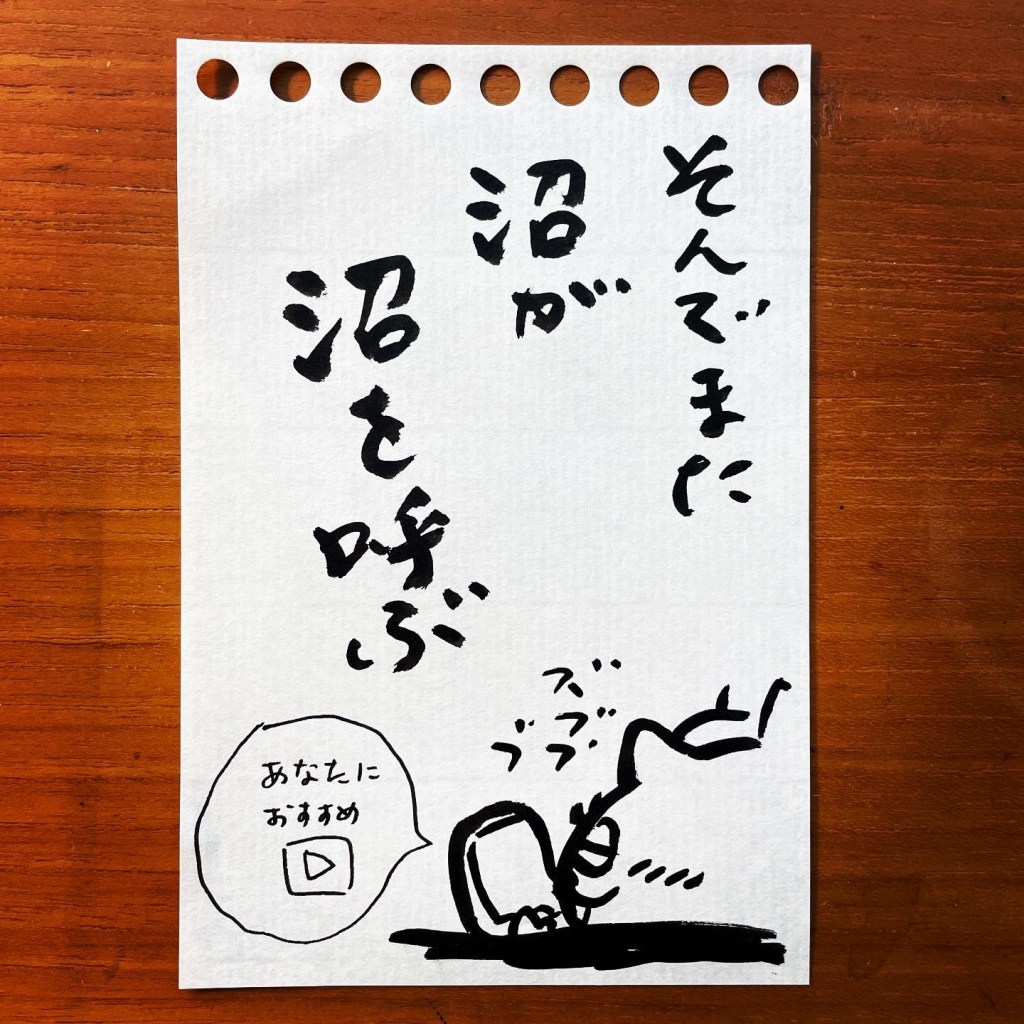 そんでまた
沼が
沼を呼ぶ
ズブブブ
あなたに
おすすめ